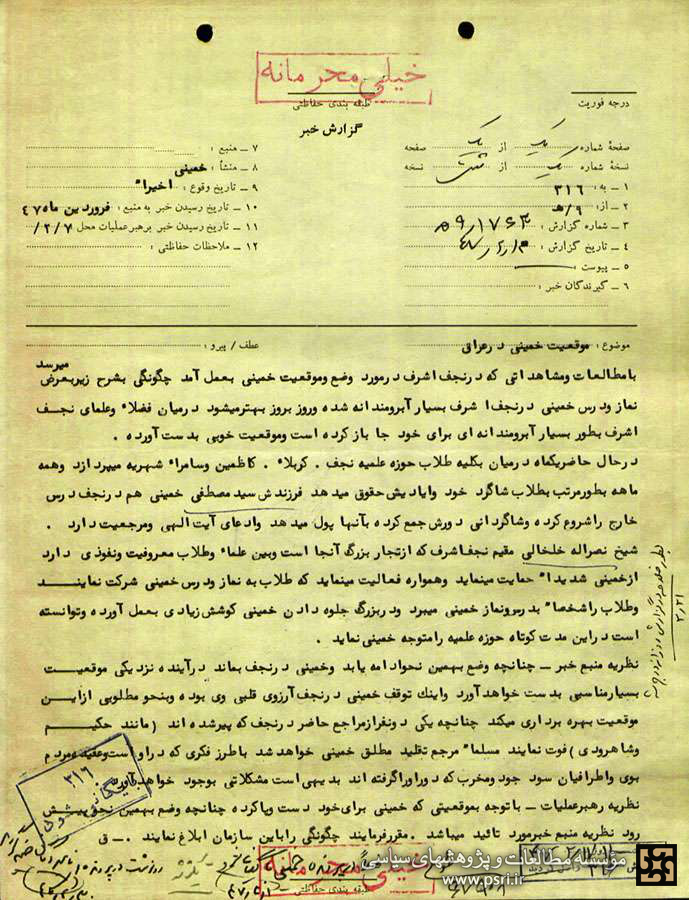 خیلی محرمانه
طبقه بندی حفاظتی
گزارش خبر
درجه فوریت
صفحهٔ شماره یک از یک صفحه
نسخهٔ شماره یک از شش نسخه
۱ ــ به : ۳۱۶
۲ ــ از : ۹/هـ
۳ ــ شماره گزارش :
۴ ــ تاریخ گزارش :
۵ ــ پیوست :
۶ ــ گیرندگان خبر :
۷ ــ منبع :
۸ ــ منشأ : خمینی
۹ ــ تاریخ وقوع : اخیراً
۱۰ ــ تاریخ رسیدن خبر به منبع : فروردین ماه ۴۷
۱۱ ــ تاریخ رسیدن خبر برهبر عملیات محل ۲/۷/
۱۲ ــ ملاحظات حفاظتی :
موضوع : موقعیت خمینی در عراق
عطف / پیرو :
بامطالعات ومشاهداتی که درنجف اشرف درمورد وضع وموقعیت خمینی بعمل آمد چگونگی بشرح زیربعرض میرسد
نماز ودرس خمینی درنجف اشرف بسیار آبرومندانه شده وروز بروز بهترمیشود درمیان فضلاء وعلمای نجف
اشرف بطور بسیار آبرومندانه ای برای خود جا باز کرده است وموقعیت خوبی بدست آورده .
درحال حاضریکماه درمیان بکلیه طلاب حوزه علمیه نجف . کربلاء . کاظمین وسامراء شهریه میپردازد وهمه
ماهه بطورمرتب بطلاب شاگرد خود وایادیش حقوق میدهد فرزندش سید مصطفی خمینی هم درنجف درس
خارج راشروع کرده وشاگردانی دورش جمع کرده بآنها پول میدهد وادعای آیت الهی ومرجعیت دارد .
شیخ نصراله خلخالی مقیم نجف اشرف که ازتجار بزرگ آنجا است وبین علماء وطلاب معروفیت ونفوذی دارد
ازخمینی شدیداً حمایت مینماید وهمواره فعالیت مینماید که طلاب به نماز ودرس خمینی شرکت نمایند
وطلاب راشخصاً بدرس ونماز خمینی میبرد ودربزرگ جلوه دادن خمینی کوشش زیادی بعمل آورده وتوانسته
است دراین مدت کوتاه حوزه علمیه رامتوجه خمینی نماید .
نظریه منبع خبر ــ چنانچه وضع بهمین نحوادامه یابد وخمینی درنجف بماند درآینده نزدیکی موقعیت
بسیارمناسبی بدست خواهدآورد واینک توقف خمینی درنجف آرزوی قلبی وی بوده وبنحو مطلوبی ازاین
موقعیت بهره برداری میکند چنانچه یکی دونفرازمراجع حاضر درنجف که پیرشده اند (مانند حکیم
وشاهرودی) فوت نمایند مسلماً مرجع تقلید مطلق خمینی خواهدشد باطرز فکری که دراواست وعقیده مردم
بوی واطرافیان سود جود ومخرب که دوراوراگرفته اند بدیهی است مشکلاتی بوجود خواهدآورد
نظریه رهبرعملیات ــ باتوجه بموقعیتی که خمینی برای خود دست وپاکرده چنانچه وضع بهمین نحو پیش
رود نظریه منبع خبرمورد تائید میباشد . مقررفرمایند چگونگی راباین سازمان ابلاغ نمایند . ــ ق
۳۱۶
بایگانی
خیلی محرمانه
طبقه بندی حفاظتی
مؤسسه مطالعات و پژوهشهای سیاسی
www.psri.ir